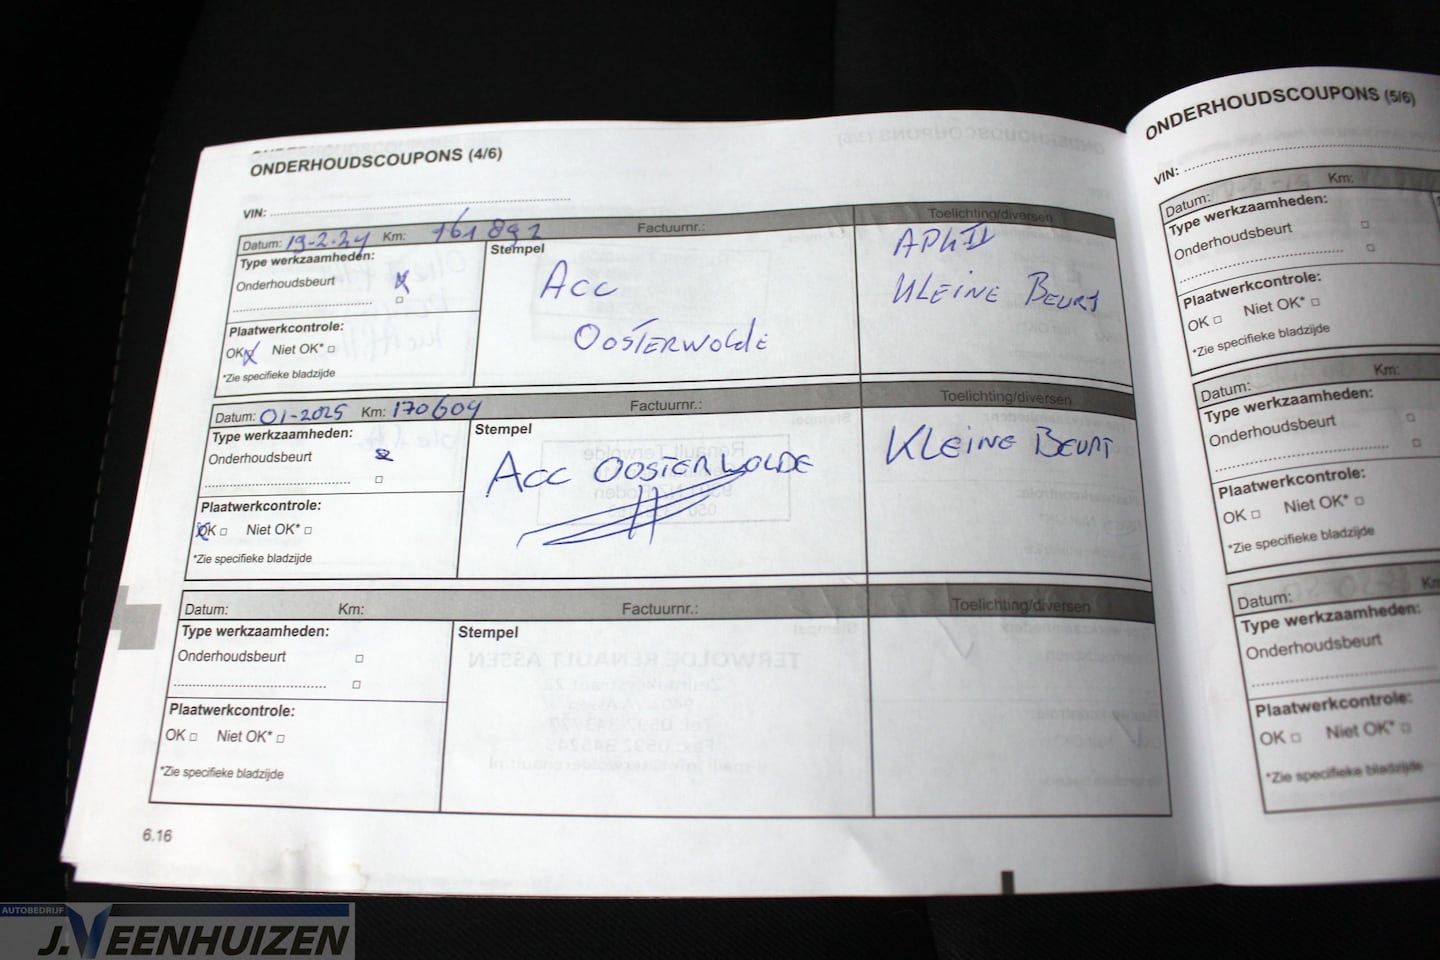 ONDERHOUDSCOUPONS (4/6)
VIN:
Datum: 19-2-24 Km: 161892 Factuurnr.: Toelichting/diversen
Type werkzaamheden:
Onderhoudsbeurt
Plaatwerkcontrole:
OK Niet OK*
*Zie specifieke bladzijde
Stempel
ACC
OOSTERWOLDE
APK
KLEINE BEURT
Datum: 01-2025 Km: 170604 Factuurnr.: Toelichting/diversen
Type werkzaamheden:
Onderhoudsbeurt
Plaatwerkcontrole:
OK Niet OK*
*Zie specifieke bladzijde
Stempel
ACC OOSTERWOLDE
KLEINE BEURT
Datum: Km: Factuurnr.: Toelichting/diversen
Type werkzaamheden:
Onderhoudsbeurt
Plaatwerkcontrole:
OK Niet OK*
*Zie specifieke bladzijde
Stempel
6.16
ONDERHOUDSCOUPONS (5/6)
VIN:
Datum: Km:
Type werkzaamheden:
Onderhoudsbeurt
Plaatwerkcontrole:
OK Niet OK*
*Zie specifieke bladzijde
Datum: Km:
Type werkzaamheden:
Onderhoudsbeurt
Plaatwerkcontrole:
OK Niet OK*
*Zie specifieke bladzijde
Datum: Km
Type werkzaamheden:
Onderhoudsbeurt
Plaatwerkcontrole:
OK Niet OK*
*Zie specifieke bladzijde
AUTOBEDRIJF
J.VEENHUIZEN